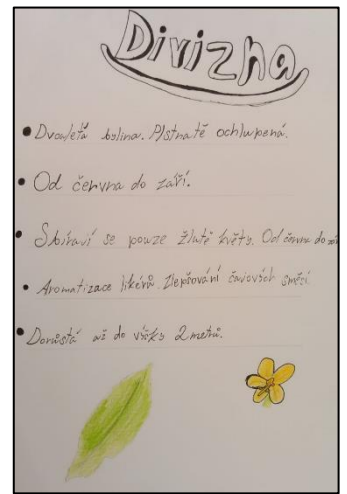 Divizna
Dvouletá bylina. Plstnatě ochlupená.
Od června do září.
Sbírají se pouze žluté květy. Od června do září
Aromatizace likérů. Zlepšování čajových směsí.
Dorůstá až do výšky 2 metrů.